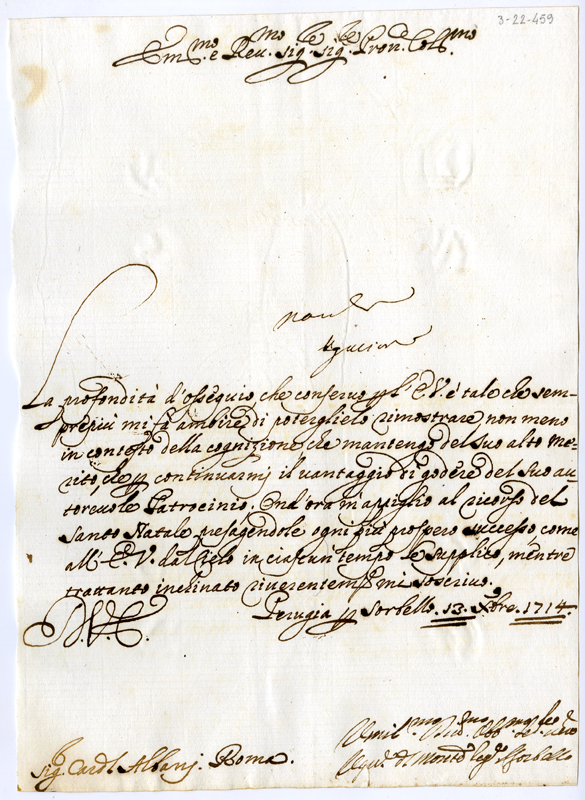 3-22-459
Em.mo e Reu.mo Sig.re Sig.re Pron. Col.mo
La profondità d'ossequio, che conseruo p l'E.V. è tale che sem-
prepiù mi fà ambire di poterglielo rimostrare, non meno
in contesto della cognizione, che mantengo del suo alto me-
rito, che p continuarmj il uantaggio di godere del suo au-
toreuole Patrocinio. Ond'ora m'appiglio al ricorso del
Santo Natale, presagendole ogni più prospero successo, come
all'E.V. dal Cielo in ciascun tempo le supplico, mentre
trattanto inchinato riuerentem.te mi soscriuo.
Perugia p Sorbello. 13. Xbre. 1714.
D.V.E.
Umil.mo Diu.mo Obb.mo
Sig. Card.l Albanj. Roma.
di Monte Sorbello